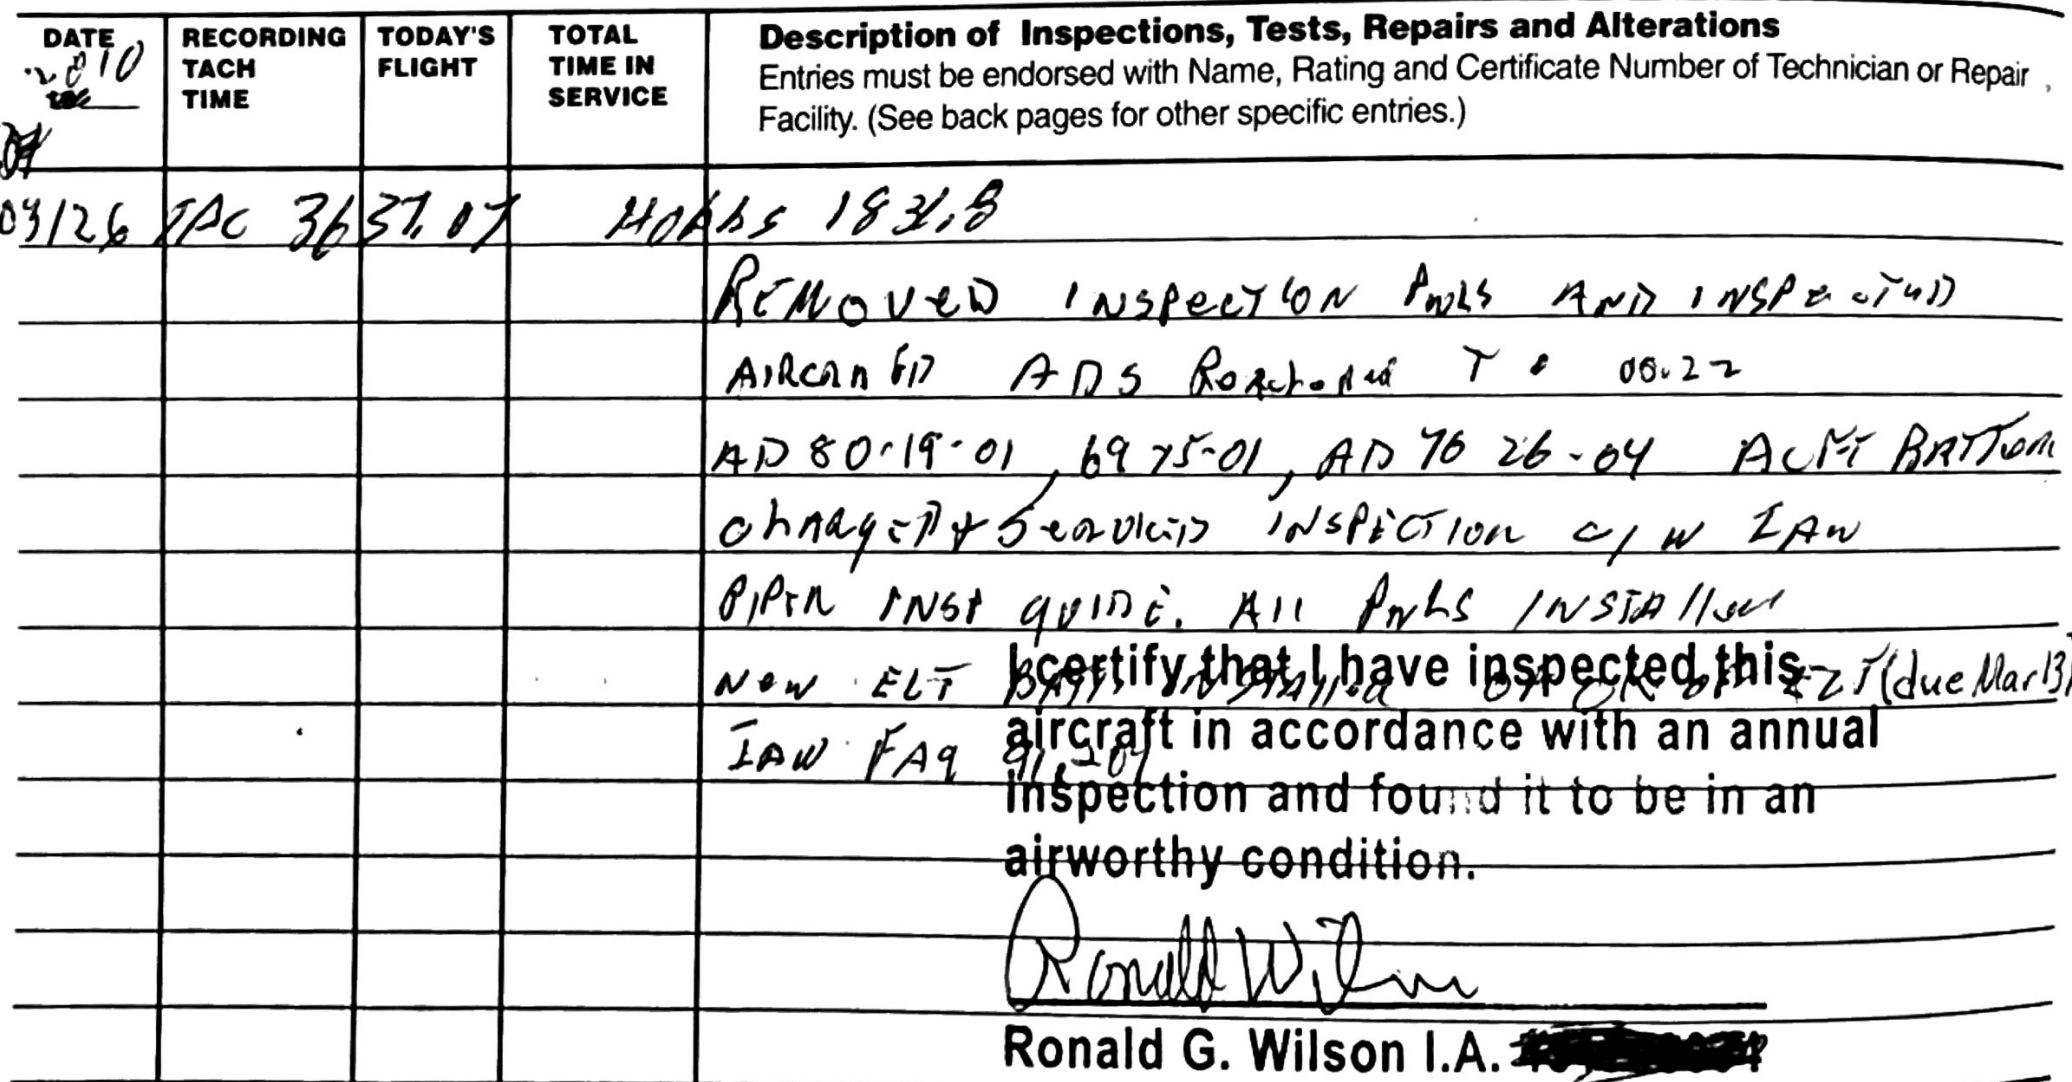 DATE 2010
RECORDING TACH TIME
TODAY'S FLIGHT
TOTAL TIME IN SERVICE
Description of Inspections, Tests, Repairs and Alterations
Entries must be endorsed with Name, Rating and Certificate Number of Technician or Repair
Facility. (See back pages for other specific entries.)
03/26 TAC 3637.07 Hobbs 1831.8
REMOVED INSPECTION PNLS AND INSPECTED
ADS 
AD 80-19-01, 69 25-01, AD 76 26-04 ACFT
Charged & Serviced INSPECTION C/W IAW
PIPER INSP GUIDE. All PNLS INSTALLED
New ELT (due Mar 13)
IAW FAR 91.207
I certify that I have inspected this
aircraft in accordance with an annual
inspection and found it to be in an
airworthy condition.
Ronald Wilson
Ronald G. Wilson I.A.